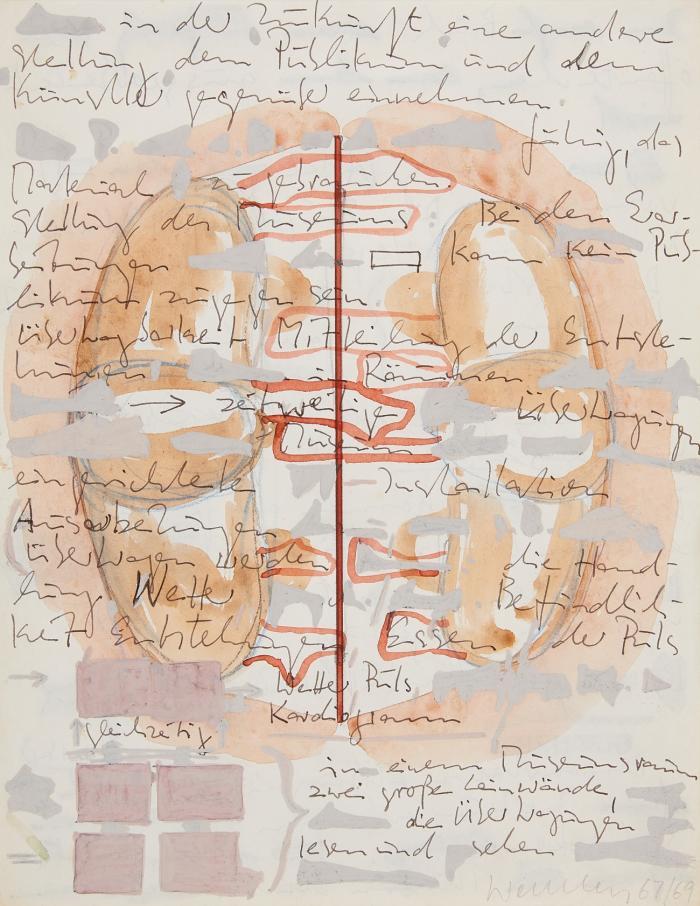 in der Zukunft eine andere
Stellung dem Publikum und dem
Künstler gegenüber einnehmen.
fähig, das
Material zu gebrauchen
Stellung des Museums Bei den Erar-
beitungen kann kein Pub-
likum zugegen sein
Überwachbarkeit Mitteilung der Entste-
hungen in Räumen
→ zeitweilige
Museum
eingerichtete Installation
Ausarbeitungen
überwagen werden die Hand-
lung. Wette Befindlich-
keit Entstehungen Essen der Puls
Wette Puls
Kardiogramm
gleichzeitig
in einem Museumsraum
zwei große Leinwände,
die Überwagungen
lesen und sehen
67/69